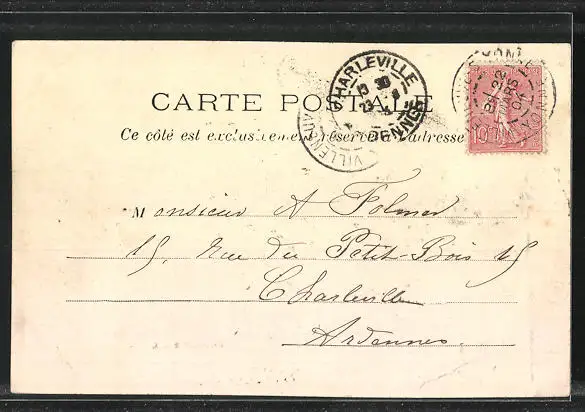 CARTE POSTALE
Ce côté est exclusivement réservé à l'adresse
CHARLEVILLE
ARDENNES
VILLENEUVE
10
Monsieur A Folmer
15, Rue du Petit-Bois 15
Charleville
Ardennes